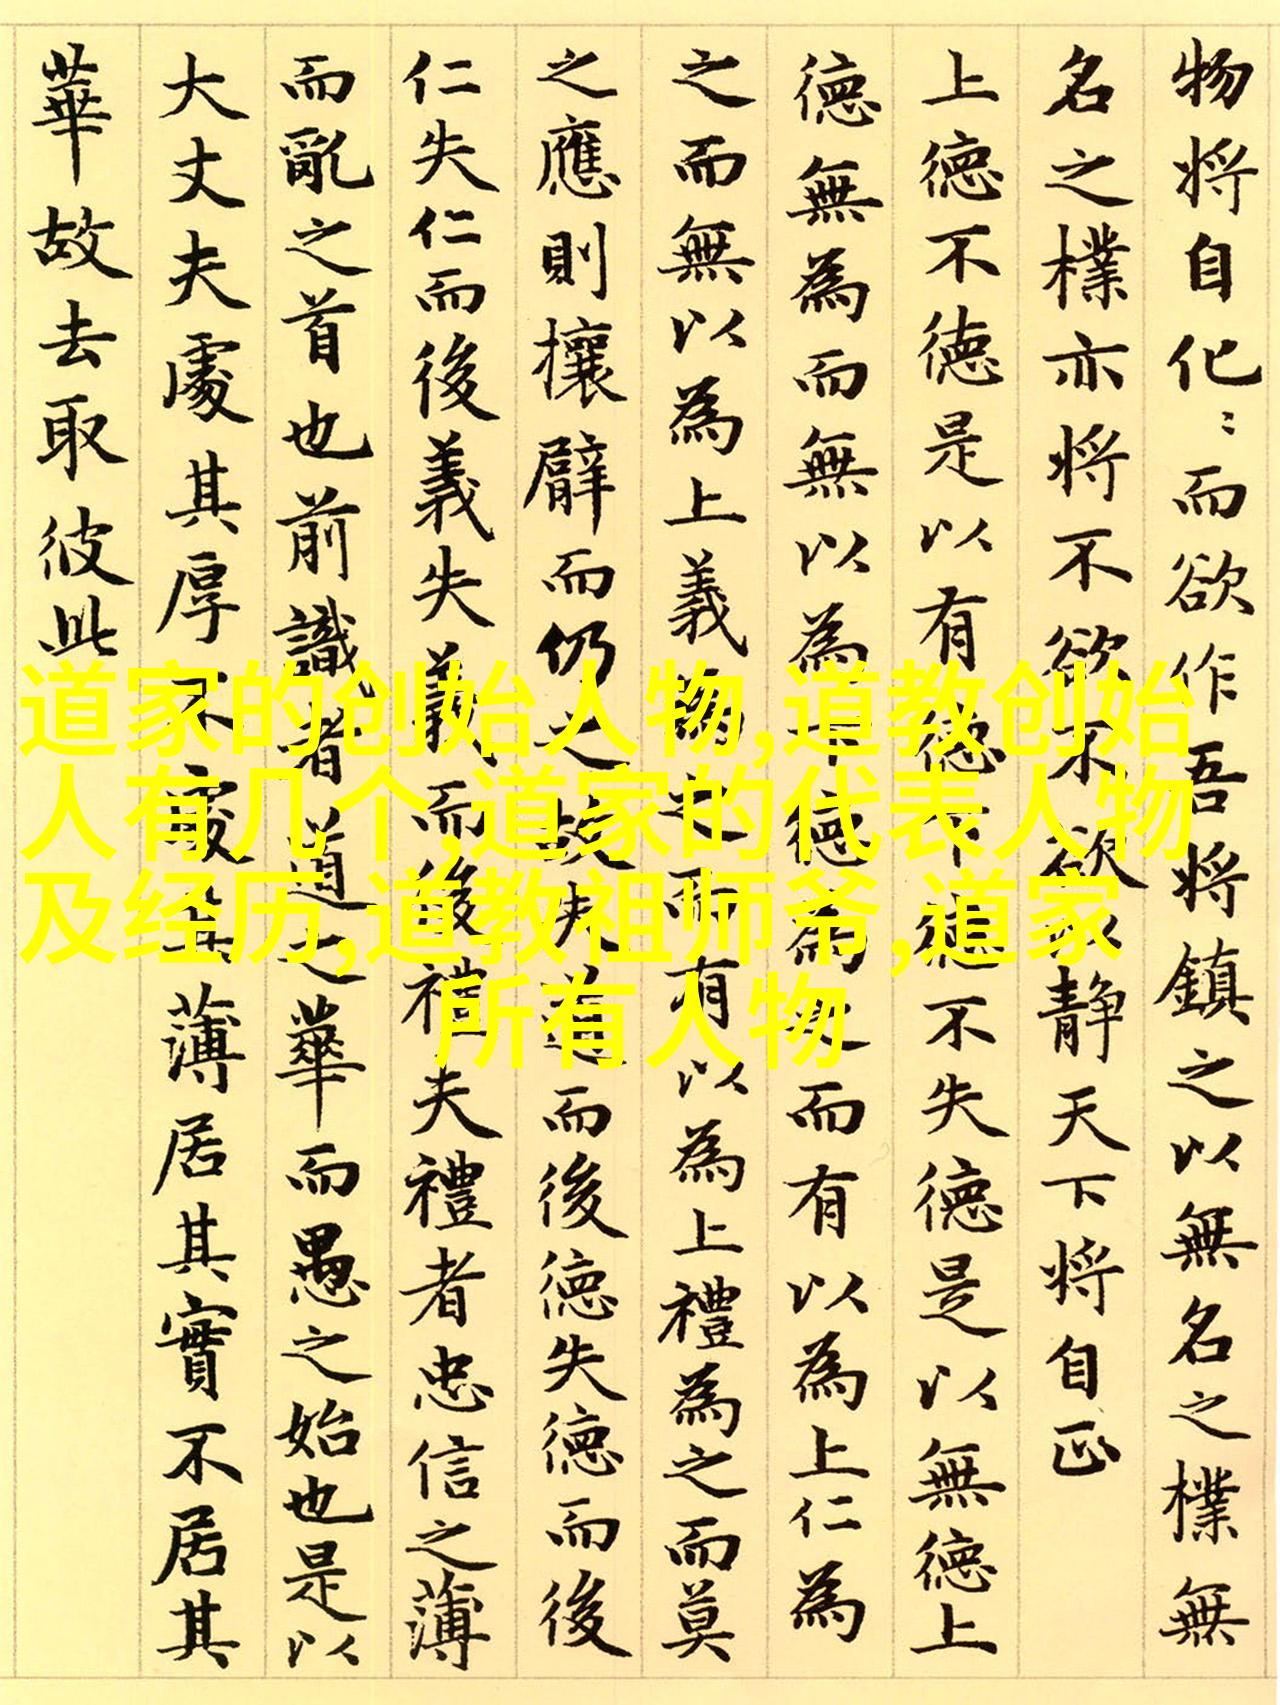 物将自化〻而欲作吾将鎮之以無名之樸無
名之樸亦将不欲不欲以静天下将自正
上德不德是以有德下德不失德是以無德上
德無為而無以為下德為之而有以為上仁為
之而無以為上義為之而有以為上禮為之而莫
之應則攘臂而仍之故失道而後德失德而後
仁失仁而後義失義而後禮夫禮者忠信之薄
而亂之首也前識者道之華而愚之始也是以
大丈夫處其厚不處其薄居其實不居其
華故去取彼此
道家的创始人物,道教创始
人有几个,道家的代表人物
及经历,道教祖师爷,道家
所有人物